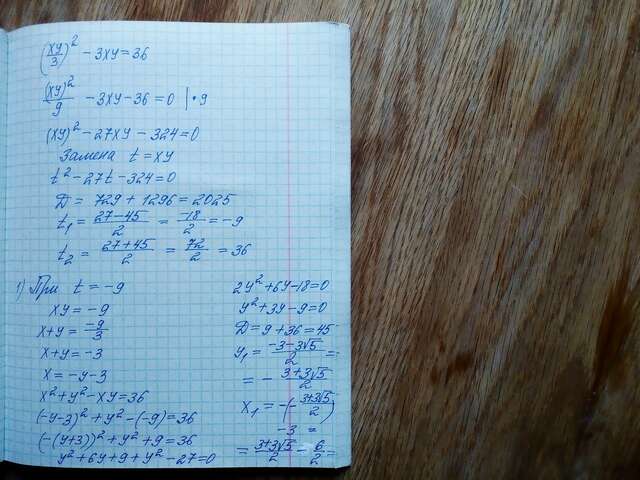 (xy/3)² - 3xy = 36
(xy)²/9 - 3xy - 36 = 0 | · 9
(xy)² - 27xy - 324 = 0
Замена t = xy
t² - 27t - 324 = 0
D = 729 + 1296 = 2025
t₁ = (27-45)/2 = -18/2 = -9
t₂ = (27+45)/2 = 72/2 = 36
1) При t = -9
xy = -9
x+y = -9/3
x+y = -3
x = -y-3
x² + y² - xy = 36
(-y-3)² + y² - (-9) = 36
(-(y+3))² + y² + 9 = 36
y² + 6y + 9 + y² - 27 = 0
2y² + 6y - 18 = 0
y² + 3y - 9 = 0
D = 9 + 36 = 45
y₁ = (-3-3√5)/2 =
= - (3+3√5)/2
x₁ = -(-(3+3√5)/2)
-3 =
= (3+3√5)/2 - 6/2 =